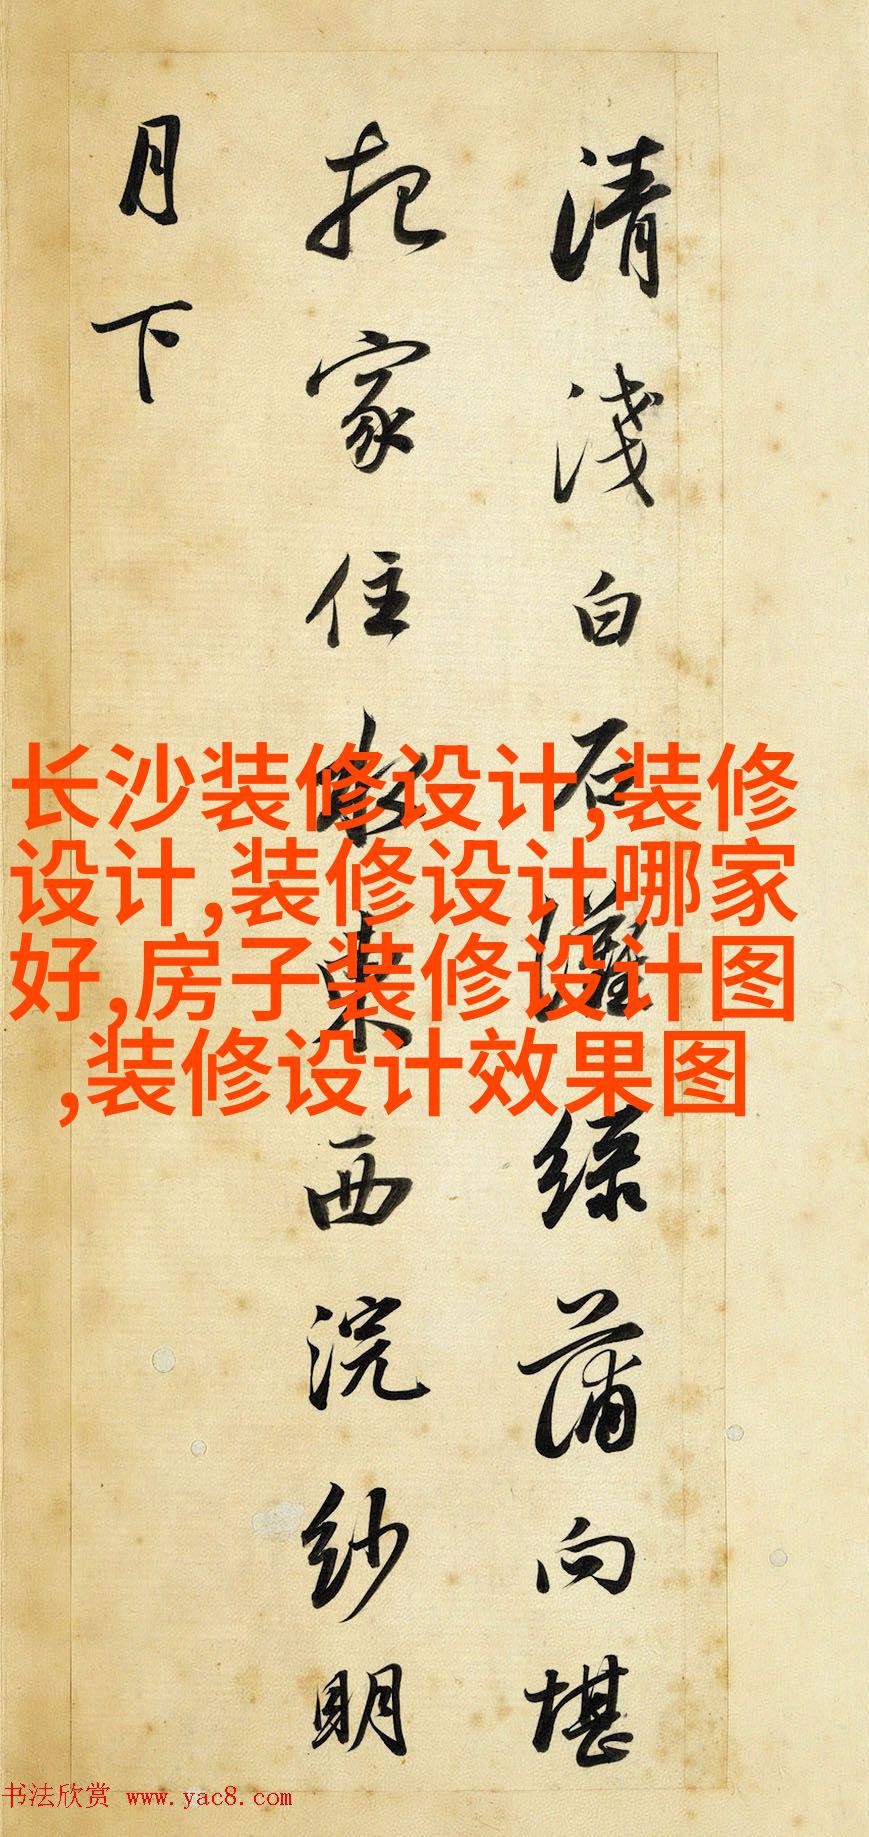 清淺白石灘綠蒲向堪
把家住水東西浣紗明
月下
长沙装修设计,装修
设计,装修设计哪家
好,房子装修设计图
,装修设计效果图
书法欣赏 www.yac8.com